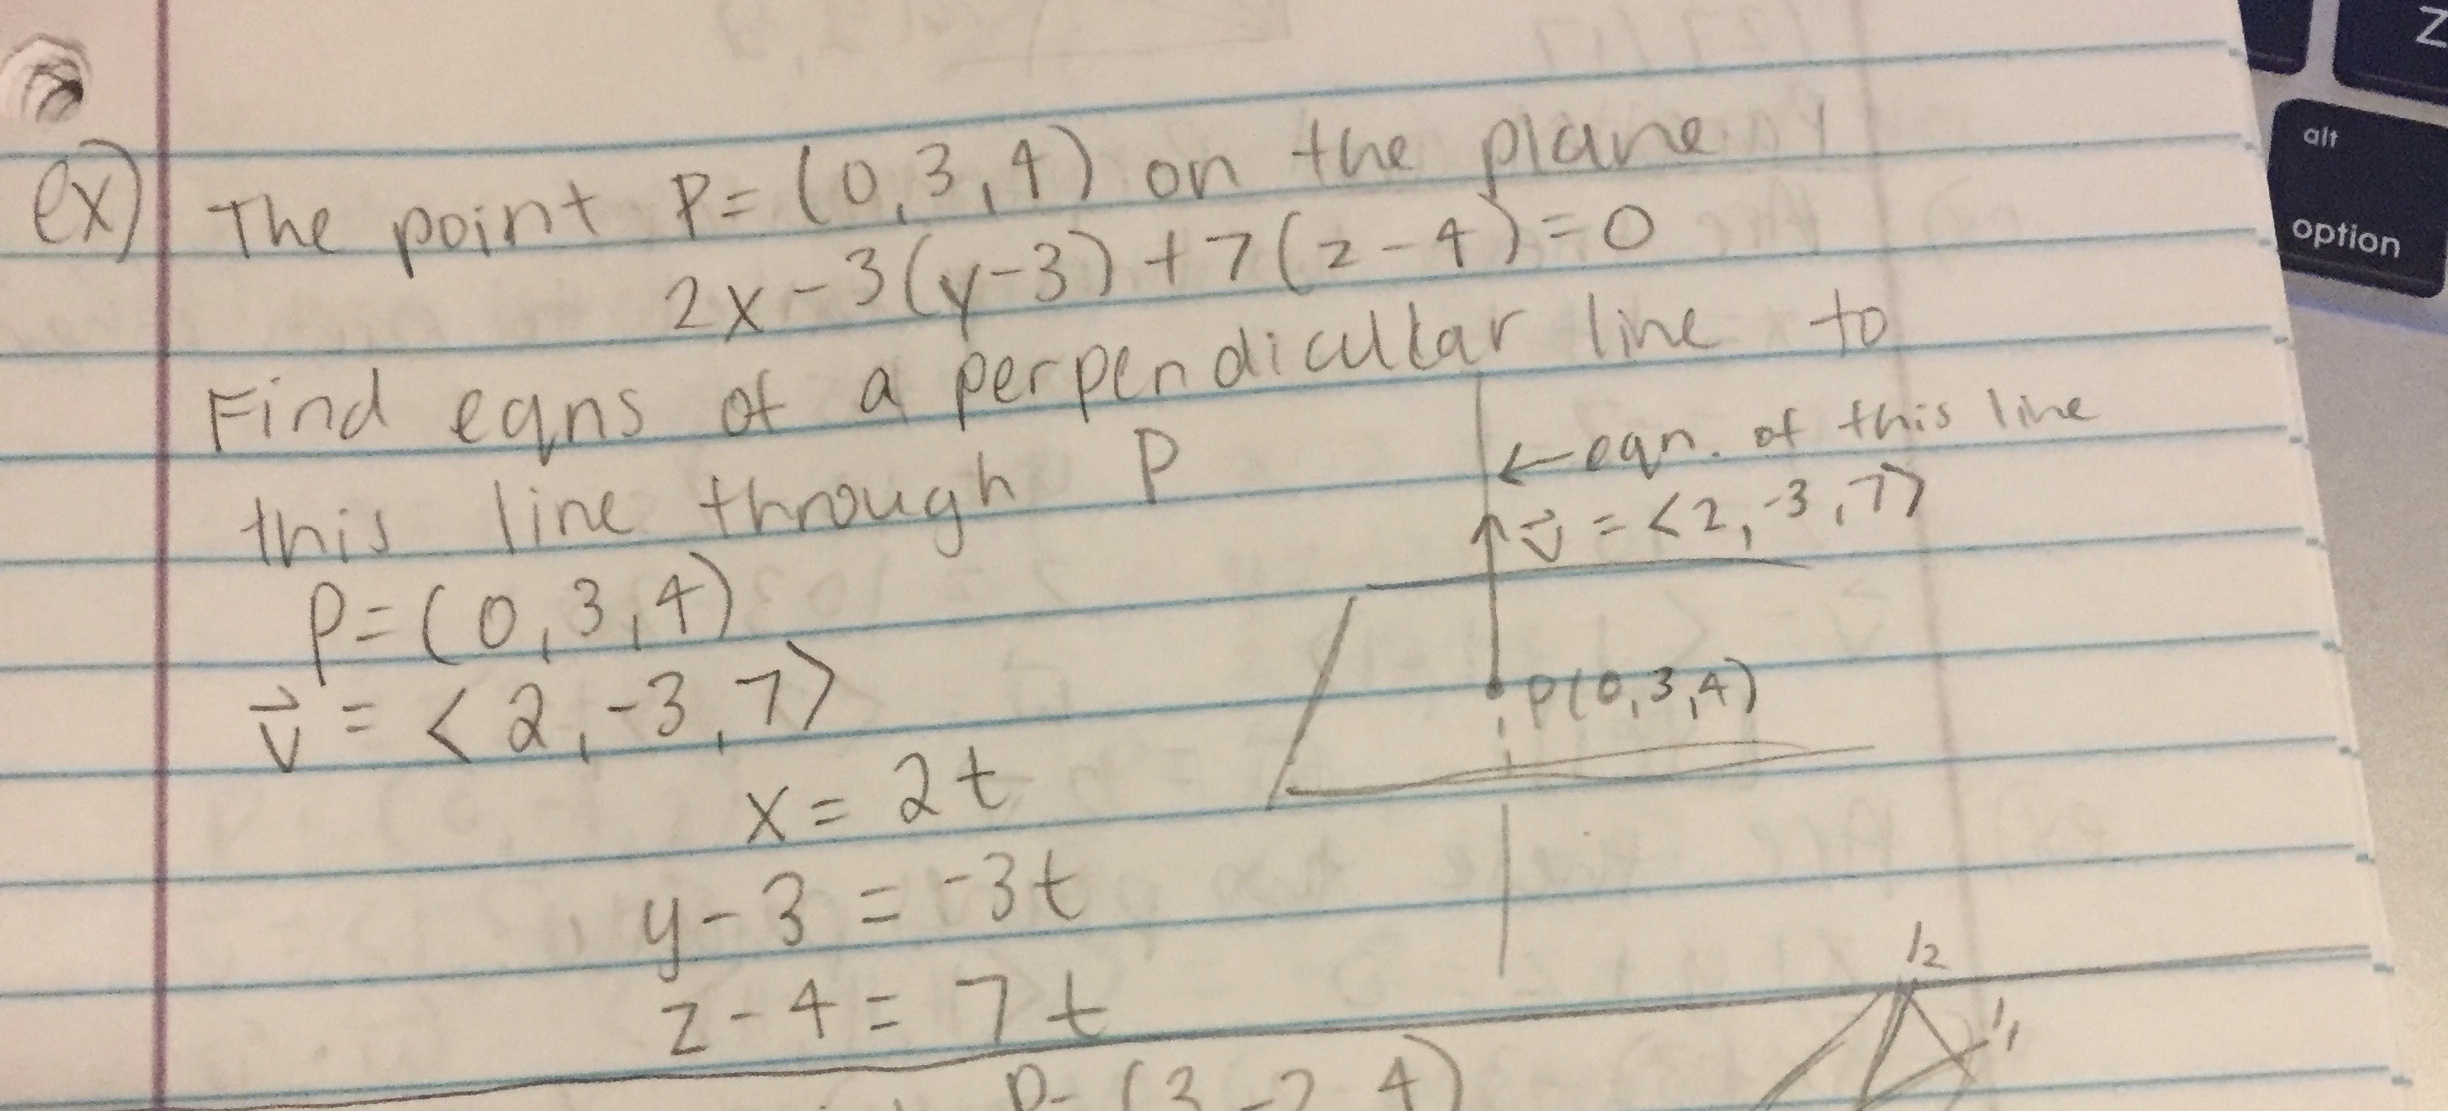 ex) The point P = (0, 3, 4) on the plane
2x - 3(y-3) + 7(z-4) = 0
Find eqns of a perpendicular line to
this line through P
← eqn. of this line
v⃗ = <2, -3, 7>
P = (0, 3, 4)
v⃗ = <2, -3, 7>
P(0, 3, 4)
x = 2t
y - 3 = -3t
z - 4 = 7t
alt
option
Z